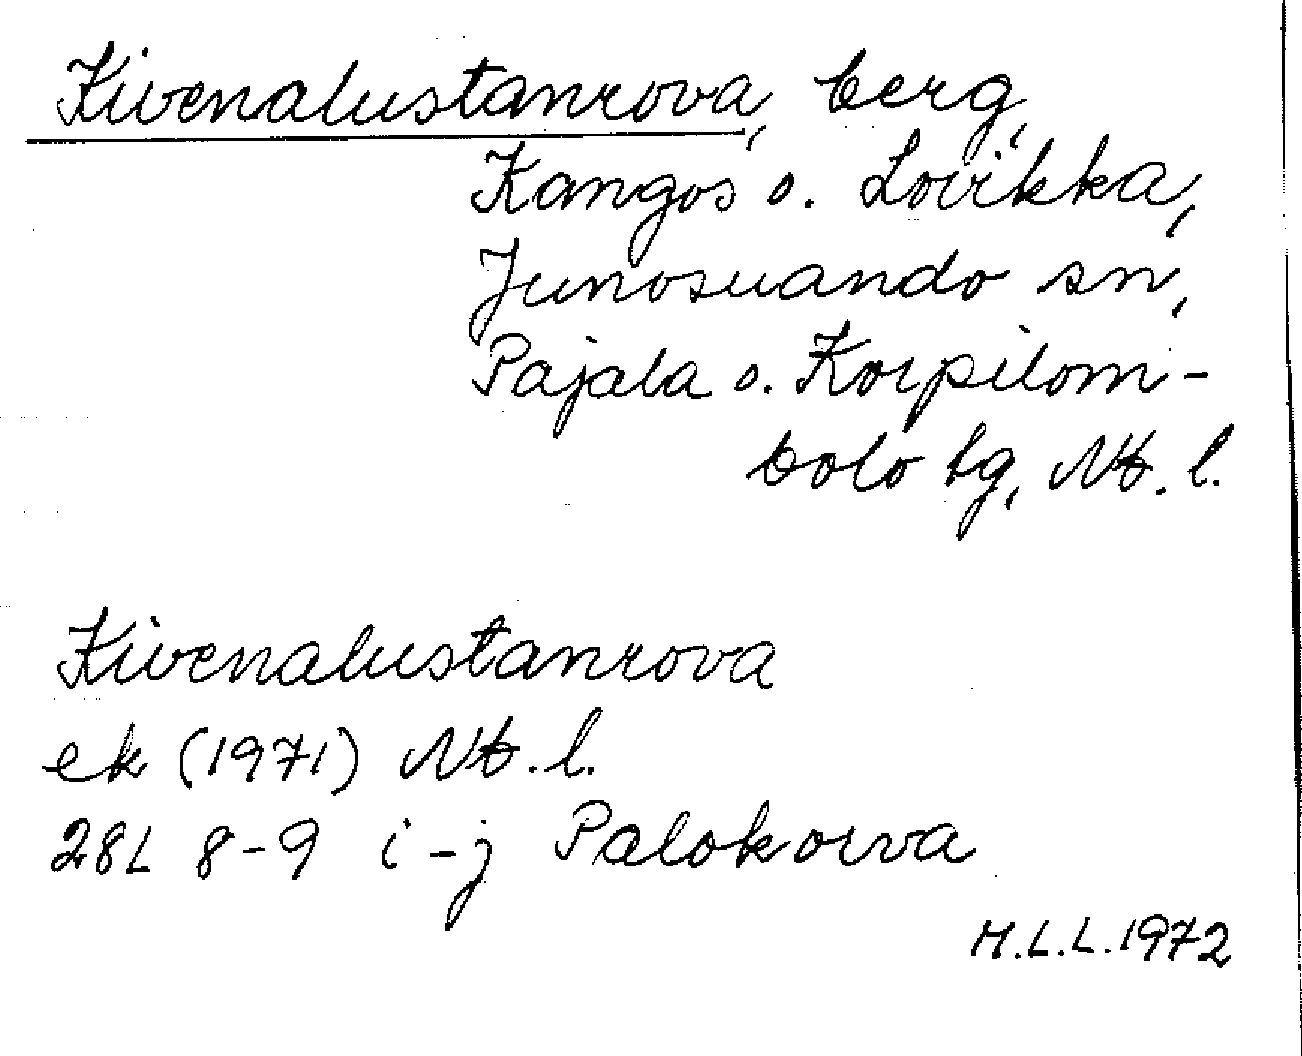 Kivenalustanrova, berg,
Kangos o. Lovikka,
Junosuando sn,
Pajala o. Korpilom-
bolo tg, Nb. l.
Kivenalustanrova
ek (1971) Nb. l.
28L 8-9 i-j Palokorva
M.L.L. 1972